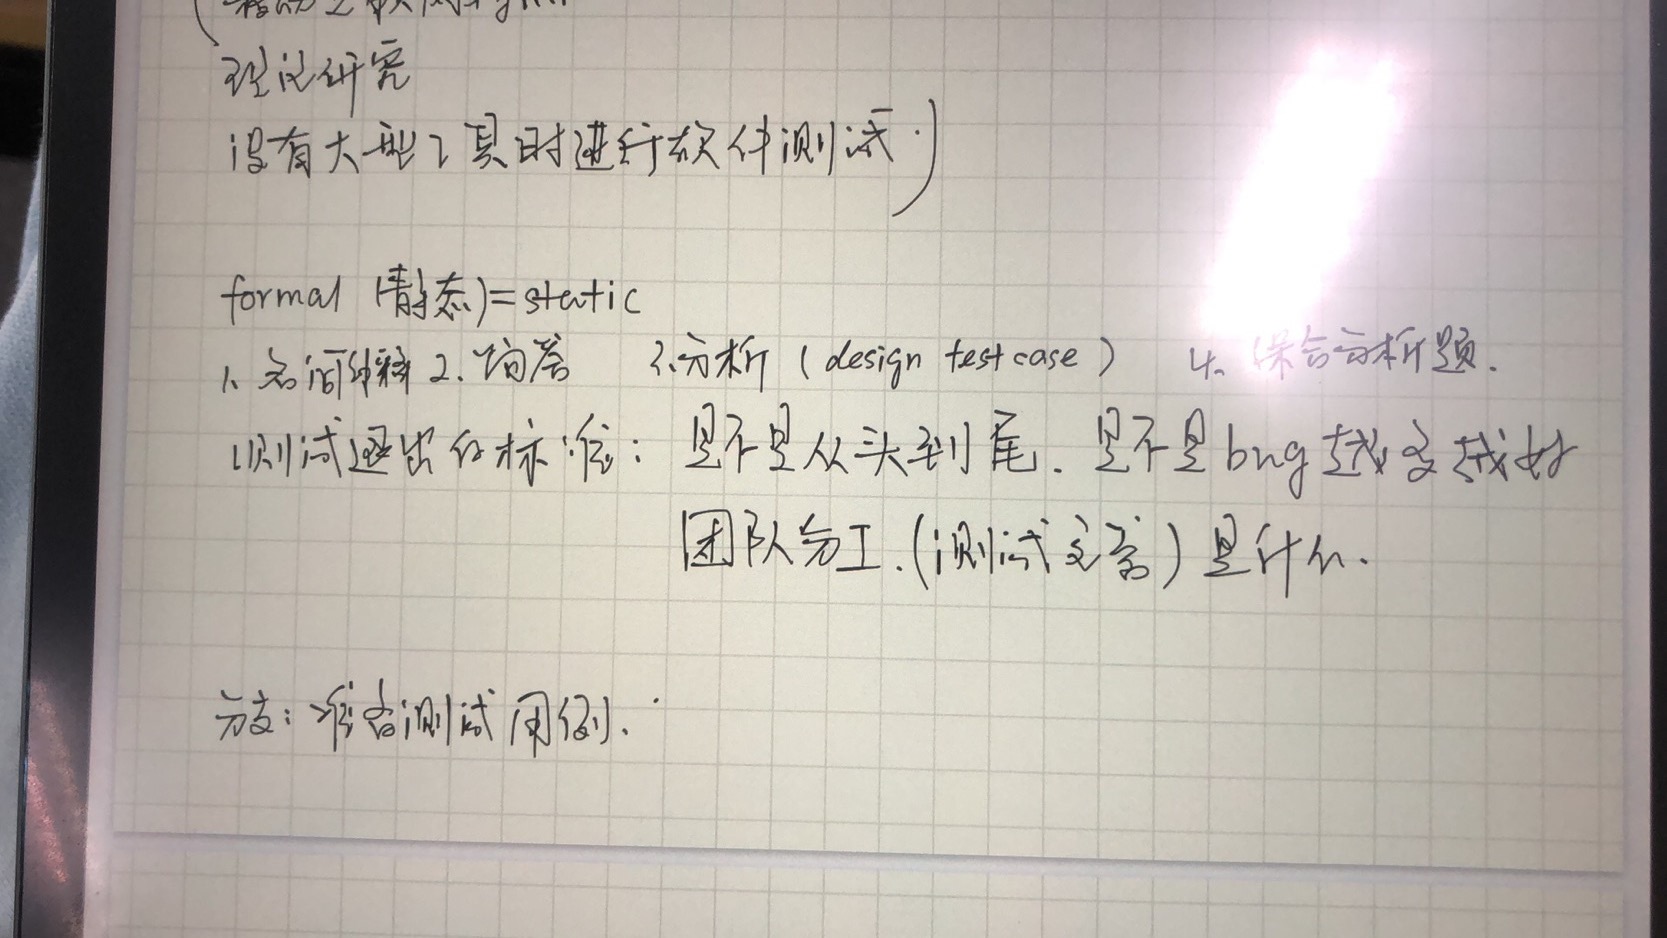 理论研究
没有大型工具时进行软件测试.)
formal (静态)=static
1、名词解释 2、简答 3.分析 (design test case) 4、综合分析题.
测试退出的标准: 是不是从头到尾. 是不是bug越多越好
团队分工.(测试文案) 是什么.
分支: 准备测试用例.